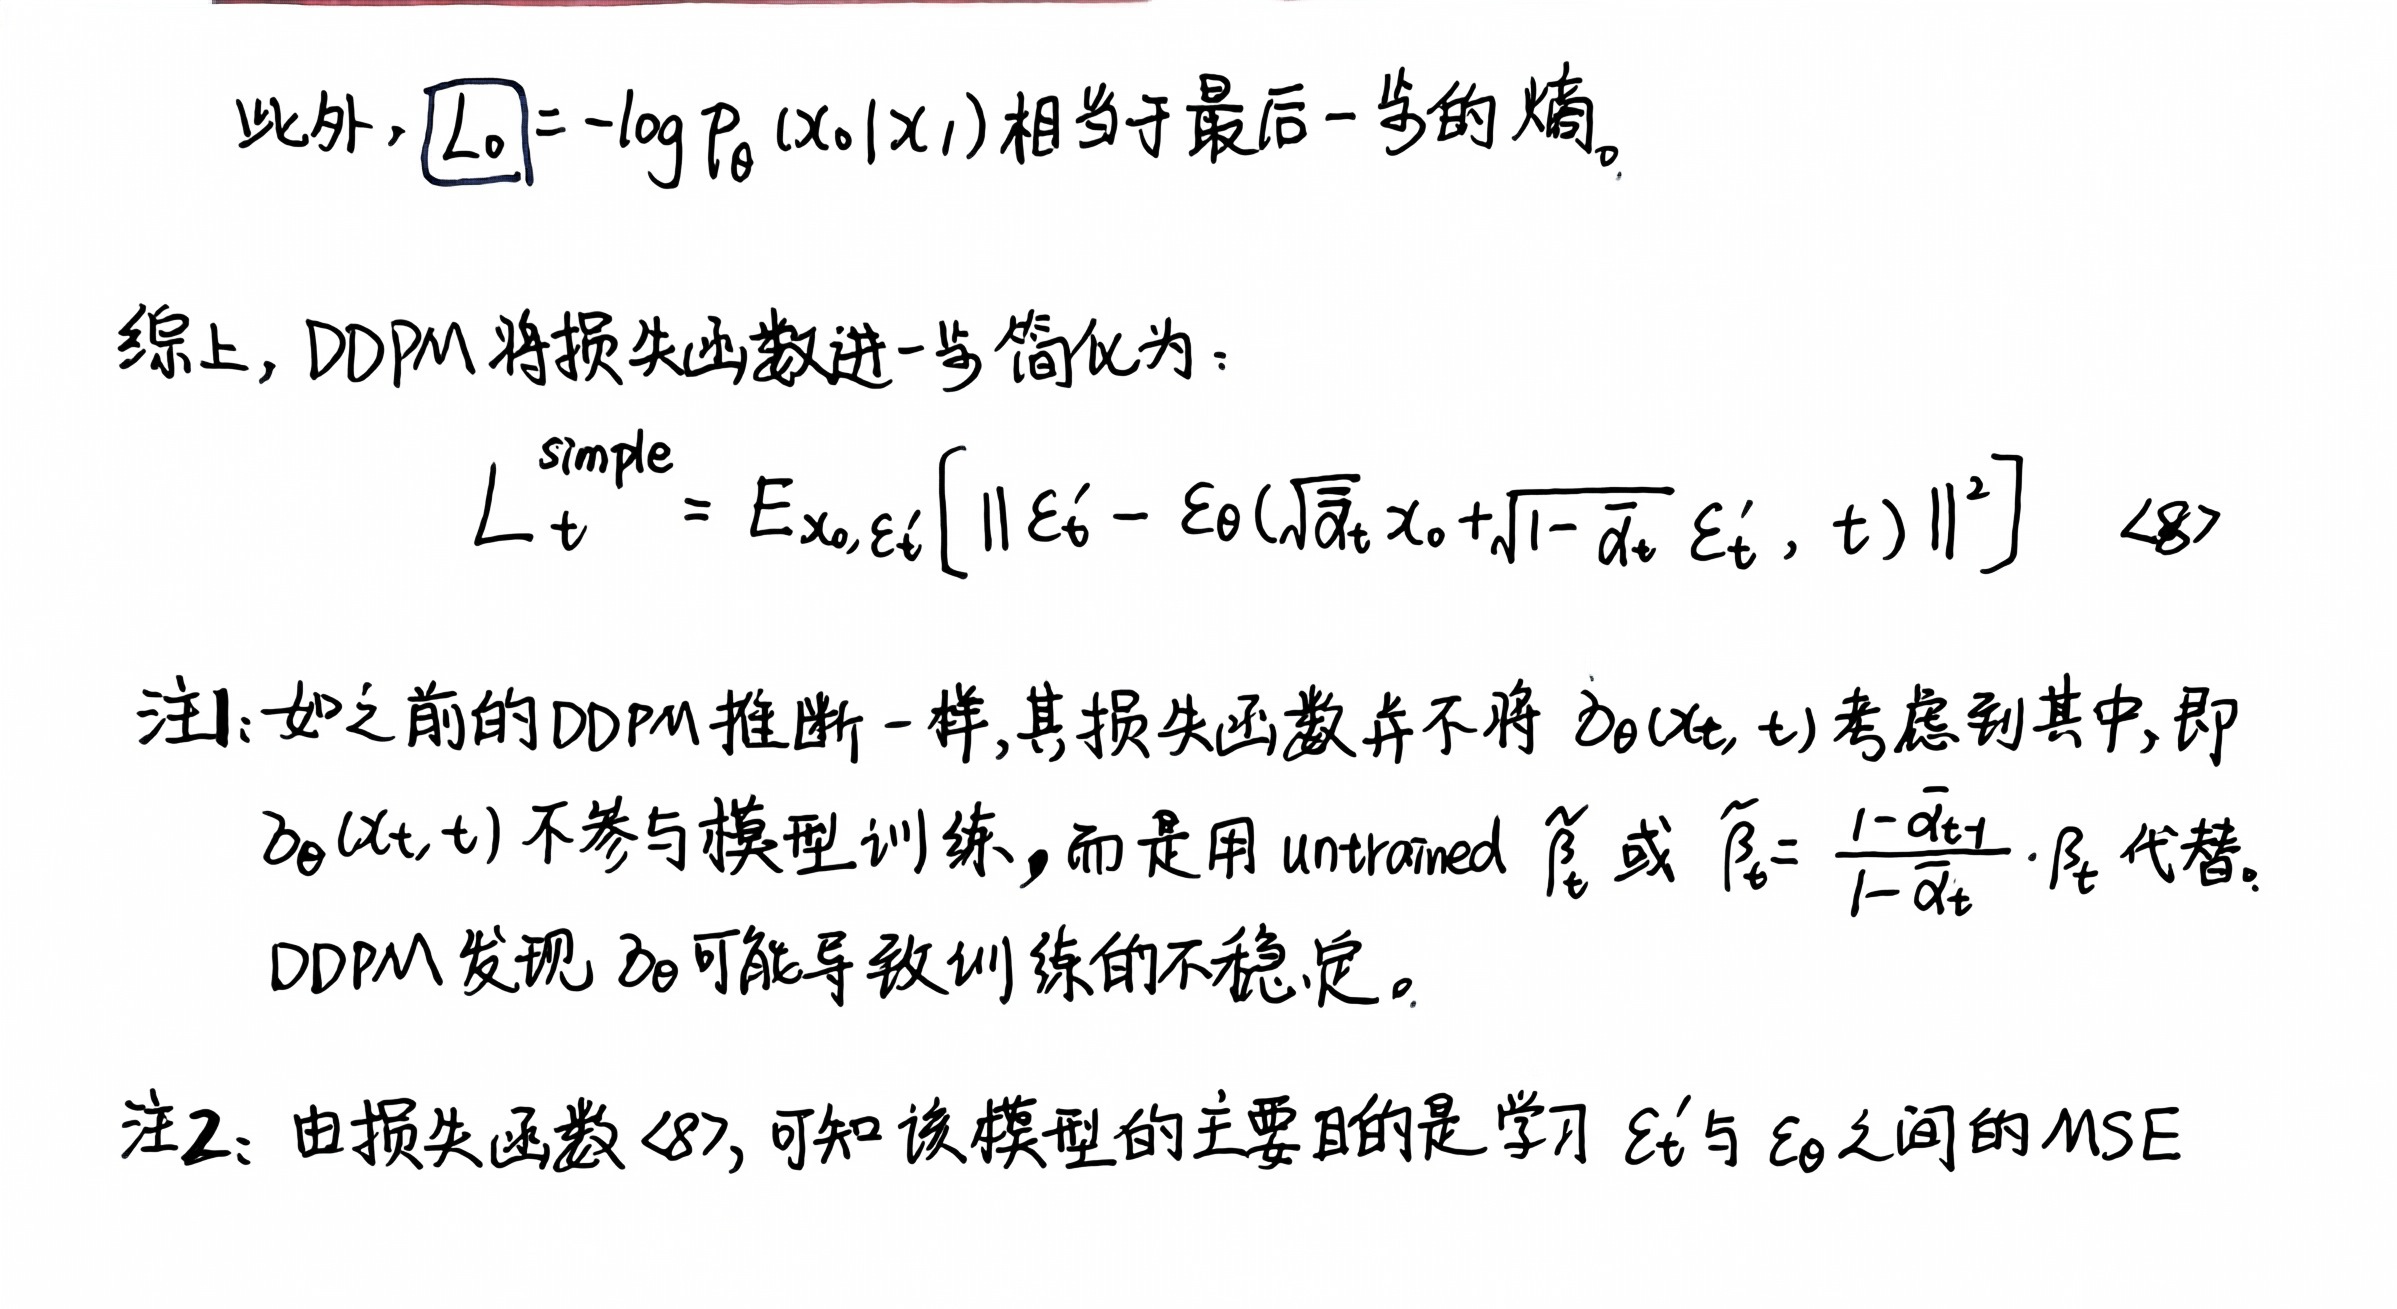 此外，L₀ = -log pθ(x₀|x₁) 相当于最后一步的熵。
综上，DDPM 将损失函数进一步简化为：
L_t^simple = E_{x₀, ε'_t} [ ‖ ε'_t - εθ(√ᾱ_t x₀ + √(1-ᾱ_t) ε'_t , t) ‖² ] <8>
注1：如之前的DDPM推断一样，其损失函数并不将 σθ(x_t, t) 考虑到其中，即
σθ(x_t, t) 不参与模型训练，而是用 untrained β̃_t 或 β̃_t = (1-ᾱ_{t-1})/(1-ᾱ_t) · β_t 代替。
DDPM 发现 σθ 可能导致训练的不稳定。
注2：由损失函数<8>，可知该模型的主要目的是学习 ε'_t 与 εθ 之间的 MSE